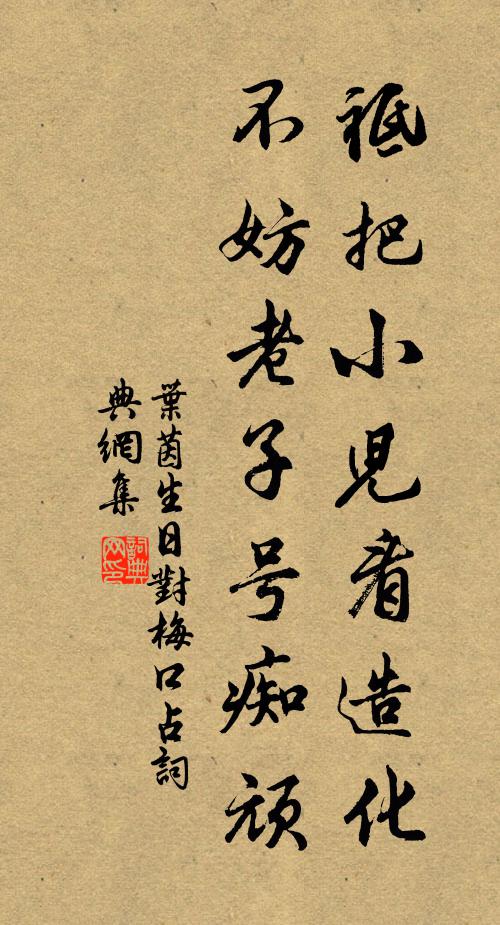 祗把小児看造化
不妨老子号痴顽
葉茵生日對梅口占詞
典網集
詞典
网印